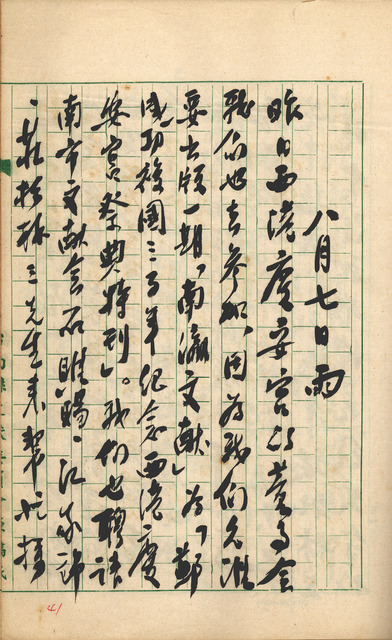 八月七日 雨
昨日西港慶安宮的董事會
我們也去參加，因為我們允准
要出版一期「南瀛文獻」為「鄭
成功復國三百年紀念西港慶
安宮祭典特刊」。我們也聘請
南市文獻會石賜、江家錦
、莊松林三先生來幫忙採
41